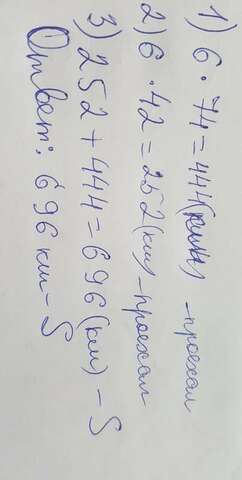 1) 6 · 74 = 444 (км) - проехал
2) 6 · 42 = 252 (км) - проехал
3) 252 + 444 = 696 (км) - S
Ответ: 696 км - S